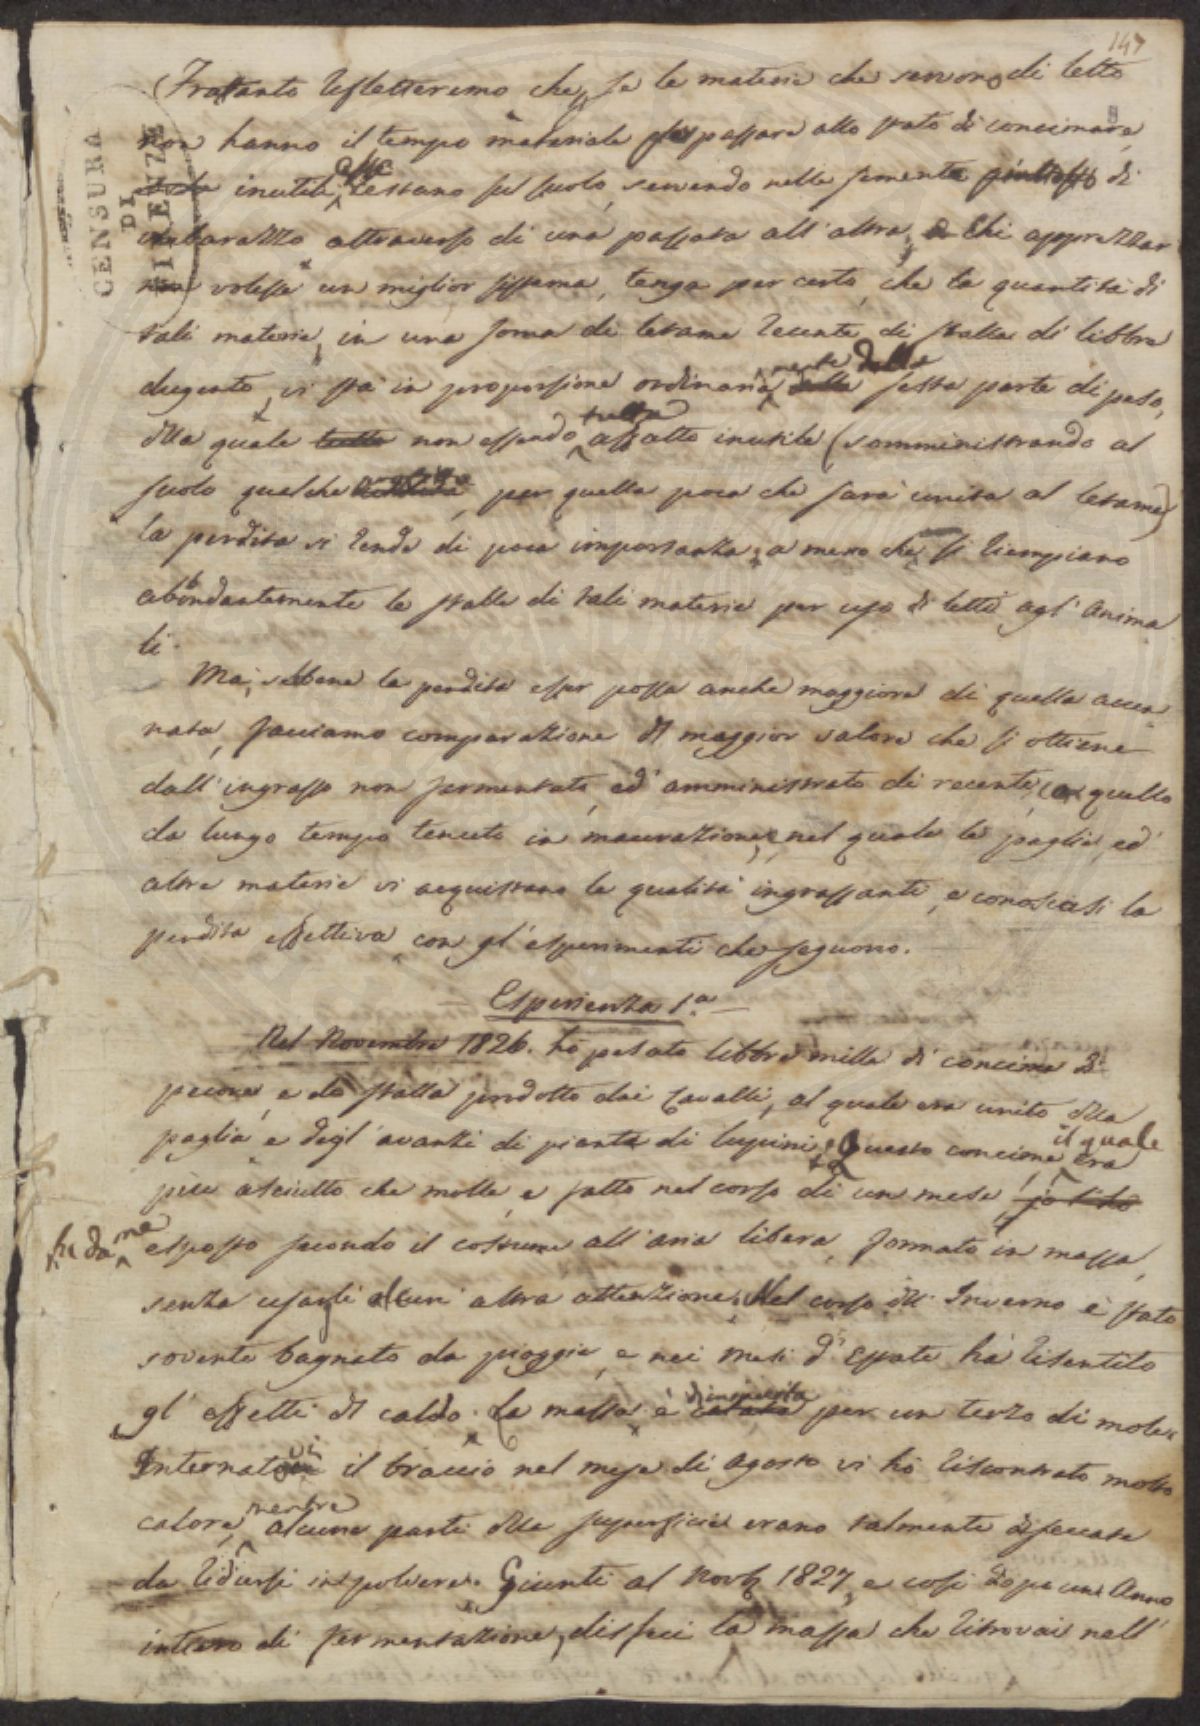 147
CENSURA
DI
FIRENZE
Frattanto rifletteremo che, se le materie che servono di letto
non hanno il tempo materiale passare allo stato di concimare,
inutili, esse restano sul suolo, servendo nelle sementa piuttosto di
imbarazzo attraverso di una passata all'altra; Chi apprezzar
non volesse un miglior sistema, tenga per certo, che la quantità di
tali materie, in una soma di letame recente di stalla di libbre
dugento, vi stà in proporzione ordinariamente della sesta parte di peso,
della quale tutto non essendo tutta affatto inutile (somministrando al
suolo qualche per quella poca che sarà unita al letame)
la perdita si rende di poca importanza; a meno che si riempiano
abbondantemente le stalle di tali materie per uso di letti agl' Anima
li.
Ma, sebbene la perdita esser possa anche maggiore di quella accen
nata, facciamo comparazione del maggior valore che si ottiene
dall'ingrasso non fermentato, ed amministrato di recente, con quello
da lungo tempo tenuto in macerazione, nel quale le paglie, ed
altre materie vi acquistano le qualità ingrassanti, e conoscasi la
perdita effettiva con gl' esperimenti che seguono.
Esperienza 1.a
Nel Novembre 1826. ho pesato libbre mille di concime di
pecore, e da stalla prodotto dai Cavalli, al quale era unito della
paglia e degl' avanzi di piante di lupini; Questo concime il quale era
più asciutto che molle, e fatto nel corso di un mese, fù da me
esposto secondo il costume all'aria libera, formato in massa,
senza usargli alcun' altra attenzione. Nel corso dell' Inverno è stato
sovente bagnato da pioggie, e nei mesi d' Estate hà risentito
gl' effetti del caldo. La massa è diminuita calata per un terzo di mole.
Internatovi il braccio nel mese di Agosto vi hò riscontrato molto
calore, mentre alcune parti della superficie erano talmente disseccate
da ridursi in polvere. Giunti al Novb 1827, e così dopo un Anno
intiero di fermentazione, disfeci la massa che ritrovai nell'